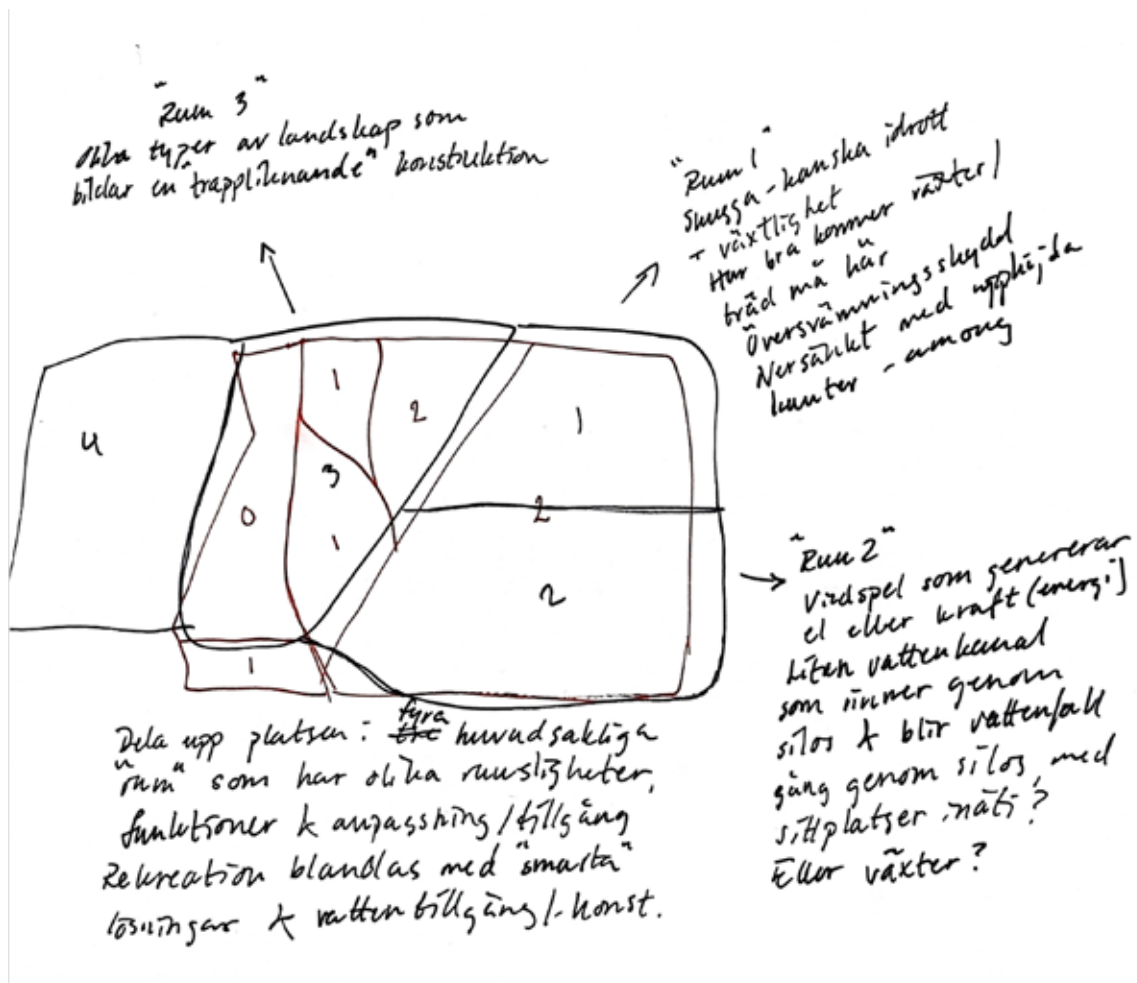 "Rum 3"
olika typer av landskap som
bildar en "trappliknande" konstruktion
"Rum 1"
skugga - kanske idrott
+ växtlighet
Hur bra kommer växter/
träd må här
Översvämningsskydd
Nersänkt med upphöjda
kanter -
4
0
1
2
3
1
1
1
2
2
"Rum 2"
Vindspel som genererar
el eller kraft (energi)
Liten vattenkanal
som rinner genom
silos & blir vattenfall
gång genom silos, med
sittplatser inåti?
Eller växter?
Dela upp platsen i fyra huvudsakliga
"rum" som har olika rumsligheter,
funktioner & anpassning/tillgång
Rekreation blandas med "smarta"
lösningar & vattentillgång/-konst.